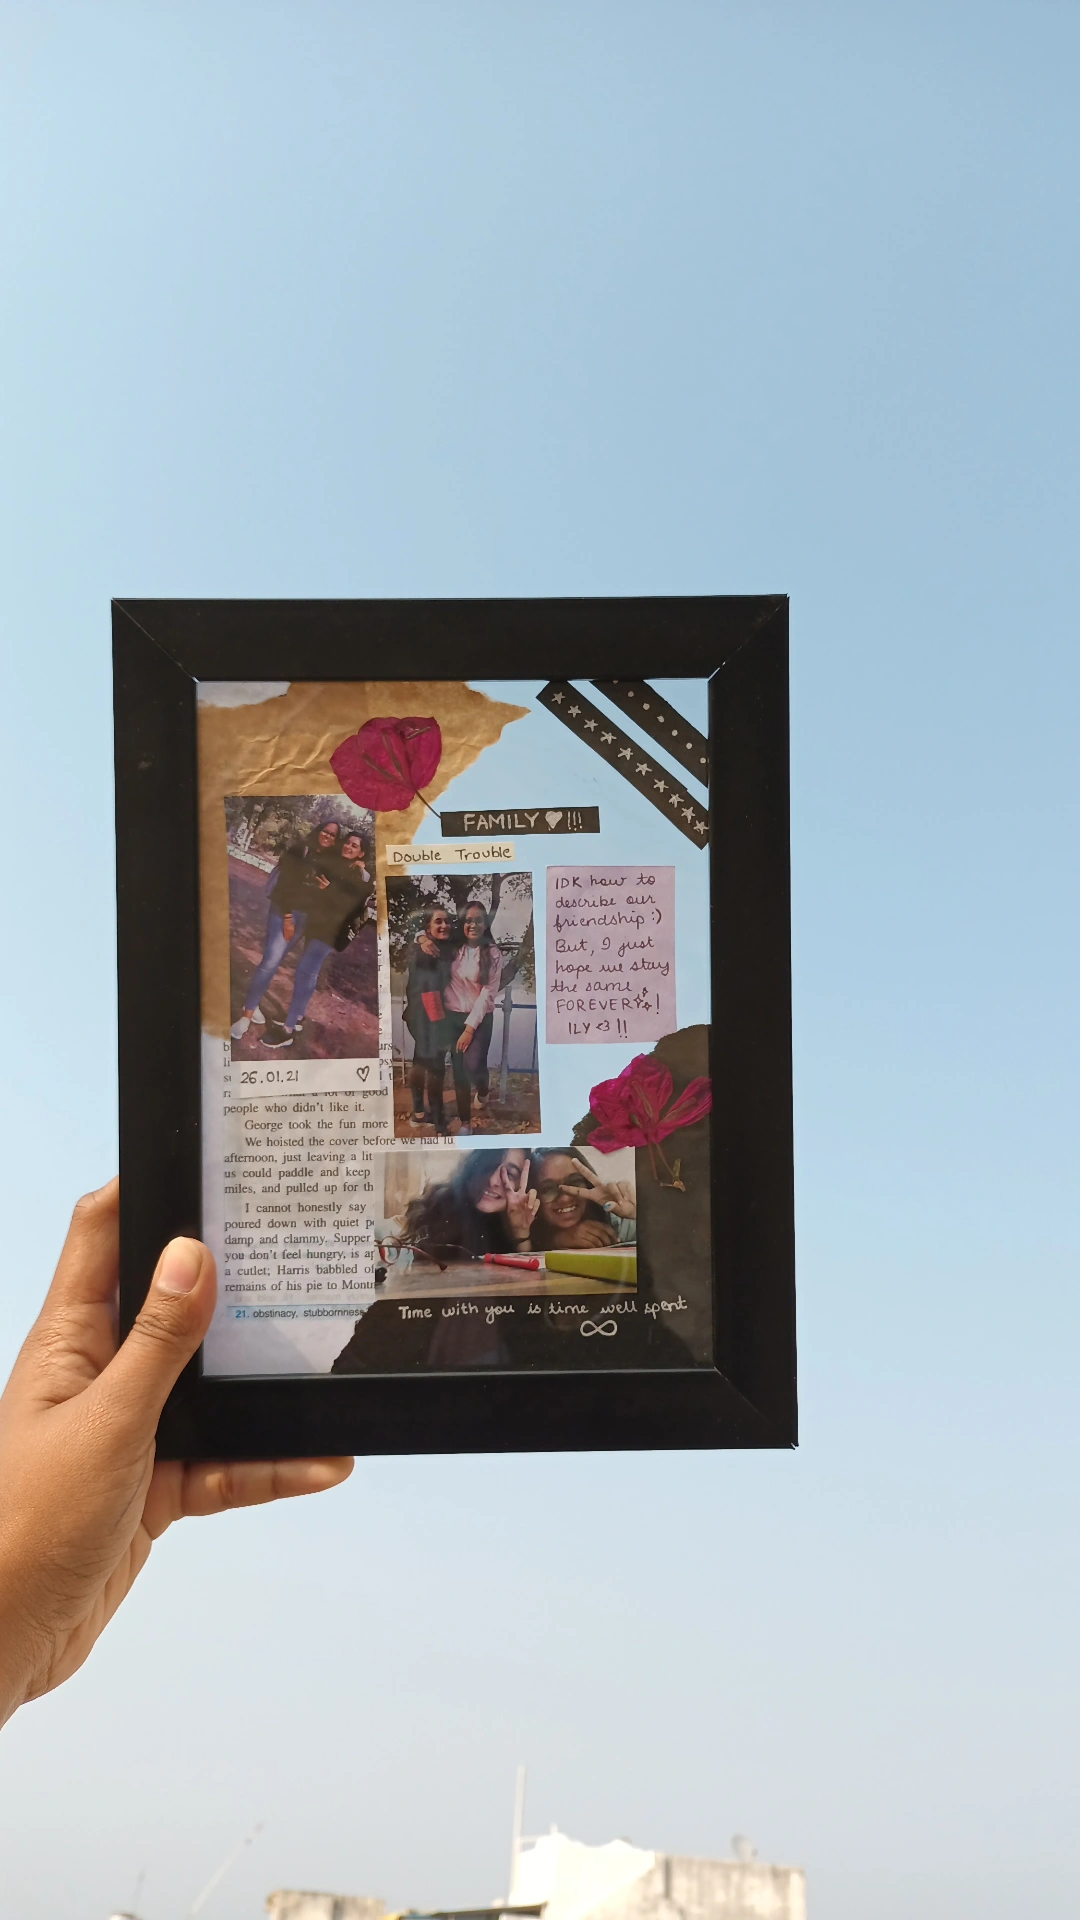 FAMILY ♥!!!
Double Trouble
IDK how to
describe our
friendship :)
But, I just
hope we stay
the same
FOREVER!
ILY <3 !!
26.01.21 ♡
good
people who didn't like it.
George took the fun more
We hoisted the cover before we had
afternoon, just leaving a lit
us could paddle and keep
miles, and pulled up for th
I cannot honestly say
poured down with quiet p
damp and clammy. Supper
you don't feel hungry, is ap
a cutlet; Harris babbled of
remains of his pie to Montm
21. obstinacy, stubbornness
Time with you is time well spent
∞